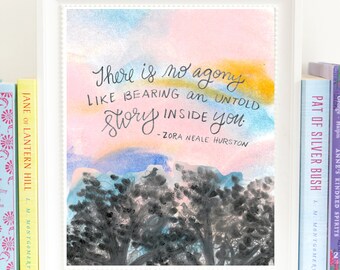 JANE OF LANTERN HILL
L. M. MONTGOMERY
There is no agony
LIKE BEARING an UNTOLD
Story INSIDE you.
- ZORA NEALE HURSTON
PAT OF SILVER BUSH
L. M. MONTGOMERY